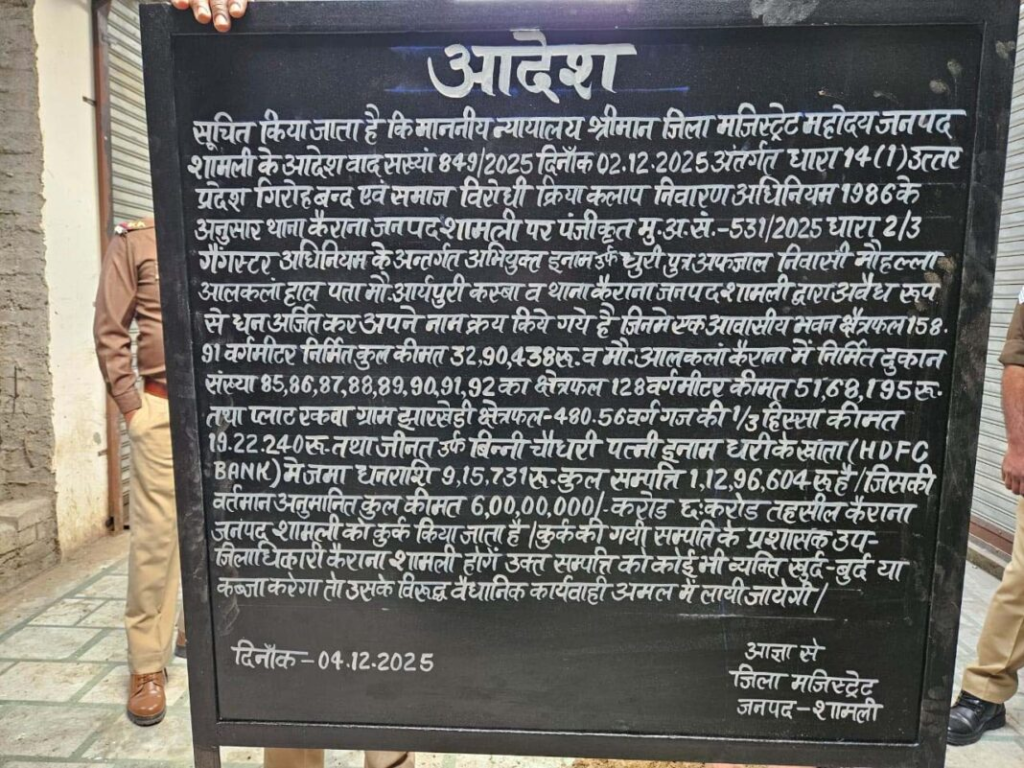 आदेश
सूचित किया जाता है कि माननीय न्यायालय श्रीमान जिला मजिस्ट्रेट महोदय जनपद
शामली के आदेश वाद सख्यां 849/2025 दिनाँक 02.12.2025 अंतर्गत धारा 14(1) उत्तर
प्रदेश गिरोहबन्द एवं समाज विरोधी क्रिया कलाप निवारण अधिनियम 1986 के
अनुसार थाना कैराना जनपद शामली पर पंजीकृत मु.अ.सं.-531/2025 धारा 2/3
गैंगस्टर अधिनियम के अन्तर्गत अभियुक्त इनाम उर्फ धुरी पुत्र अफजाल निवासी मौहल्ला
आलकलां हाल पता मौ. आर्यपुरी कस्बा व थाना कैराना जनपद शामली द्वारा अवैध रूप
से धन अर्जित कर अपने नाम क्रय किये गये है जिनमे एक आवासीय भवन क्षेत्रफल 158.
91 वर्गमीटर निर्मित कुल कीमत 32,90,438रू. व मौ. आलकलां कैराना में निर्मित दुकान
संख्या 85,86,87,88,89,90,91,92 का क्षेत्रफल 128 वर्गमीटर कीमत 51,68,195रू.
तथा प्लाट रकवा ग्राम झारखेड़ी क्षेत्रफल-480.56 वर्ग गज की 1/3 हिस्सा कीमत
19.22.240रू. तथा जीनत उर्फ बिन्नी चौधरी पत्नी इनाम धरी के खाता (HDFC
BANK) मे जमा धनराशि 9,15,731रू. कुल सम्पत्ति 1,12,96,604 रू है/जिसकी
वर्तमान अनुमानित कुल कीमत 6,00,00,000/- करोड छ: करोड तहसील कैराना
जनपद शामली को कुर्क किया जाता है/कुर्क की गयी सम्पत्ति के प्रशासक उप-
जिलाधिकारी कैराना शामली होगें उक्त सम्पत्ति को कोई भी व्यक्ति खुर्द-बुर्द या
कब्जा करेगा तो उसके विरूद्ध वैधानिक कार्यवाही अमल में लायी जायेगी/
दिनाँक-04.12.2025
आज्ञा से
जिला मजिस्ट्रेट
जनपद-शामली